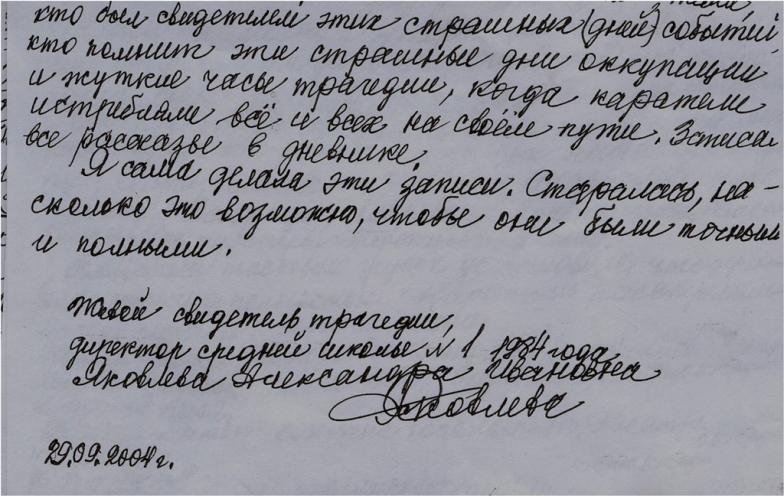 кто был свидетелем этих страшных (дней) событий
кто помнит эти страшные дни оккупации
и жуткие часы трагедии, когда каратели
истребляли всё и всех на своём пути. Записал
все рассказы в дневнике.
Я сама делала эти записи. Старалась, на-
сколько это возможно, чтобы они были точными
и полными.
Живой свидетель трагедии,
директор средней школы №1 1984 года
Яковлева Александра Ивановна
Яковлева
29.09.2004г.